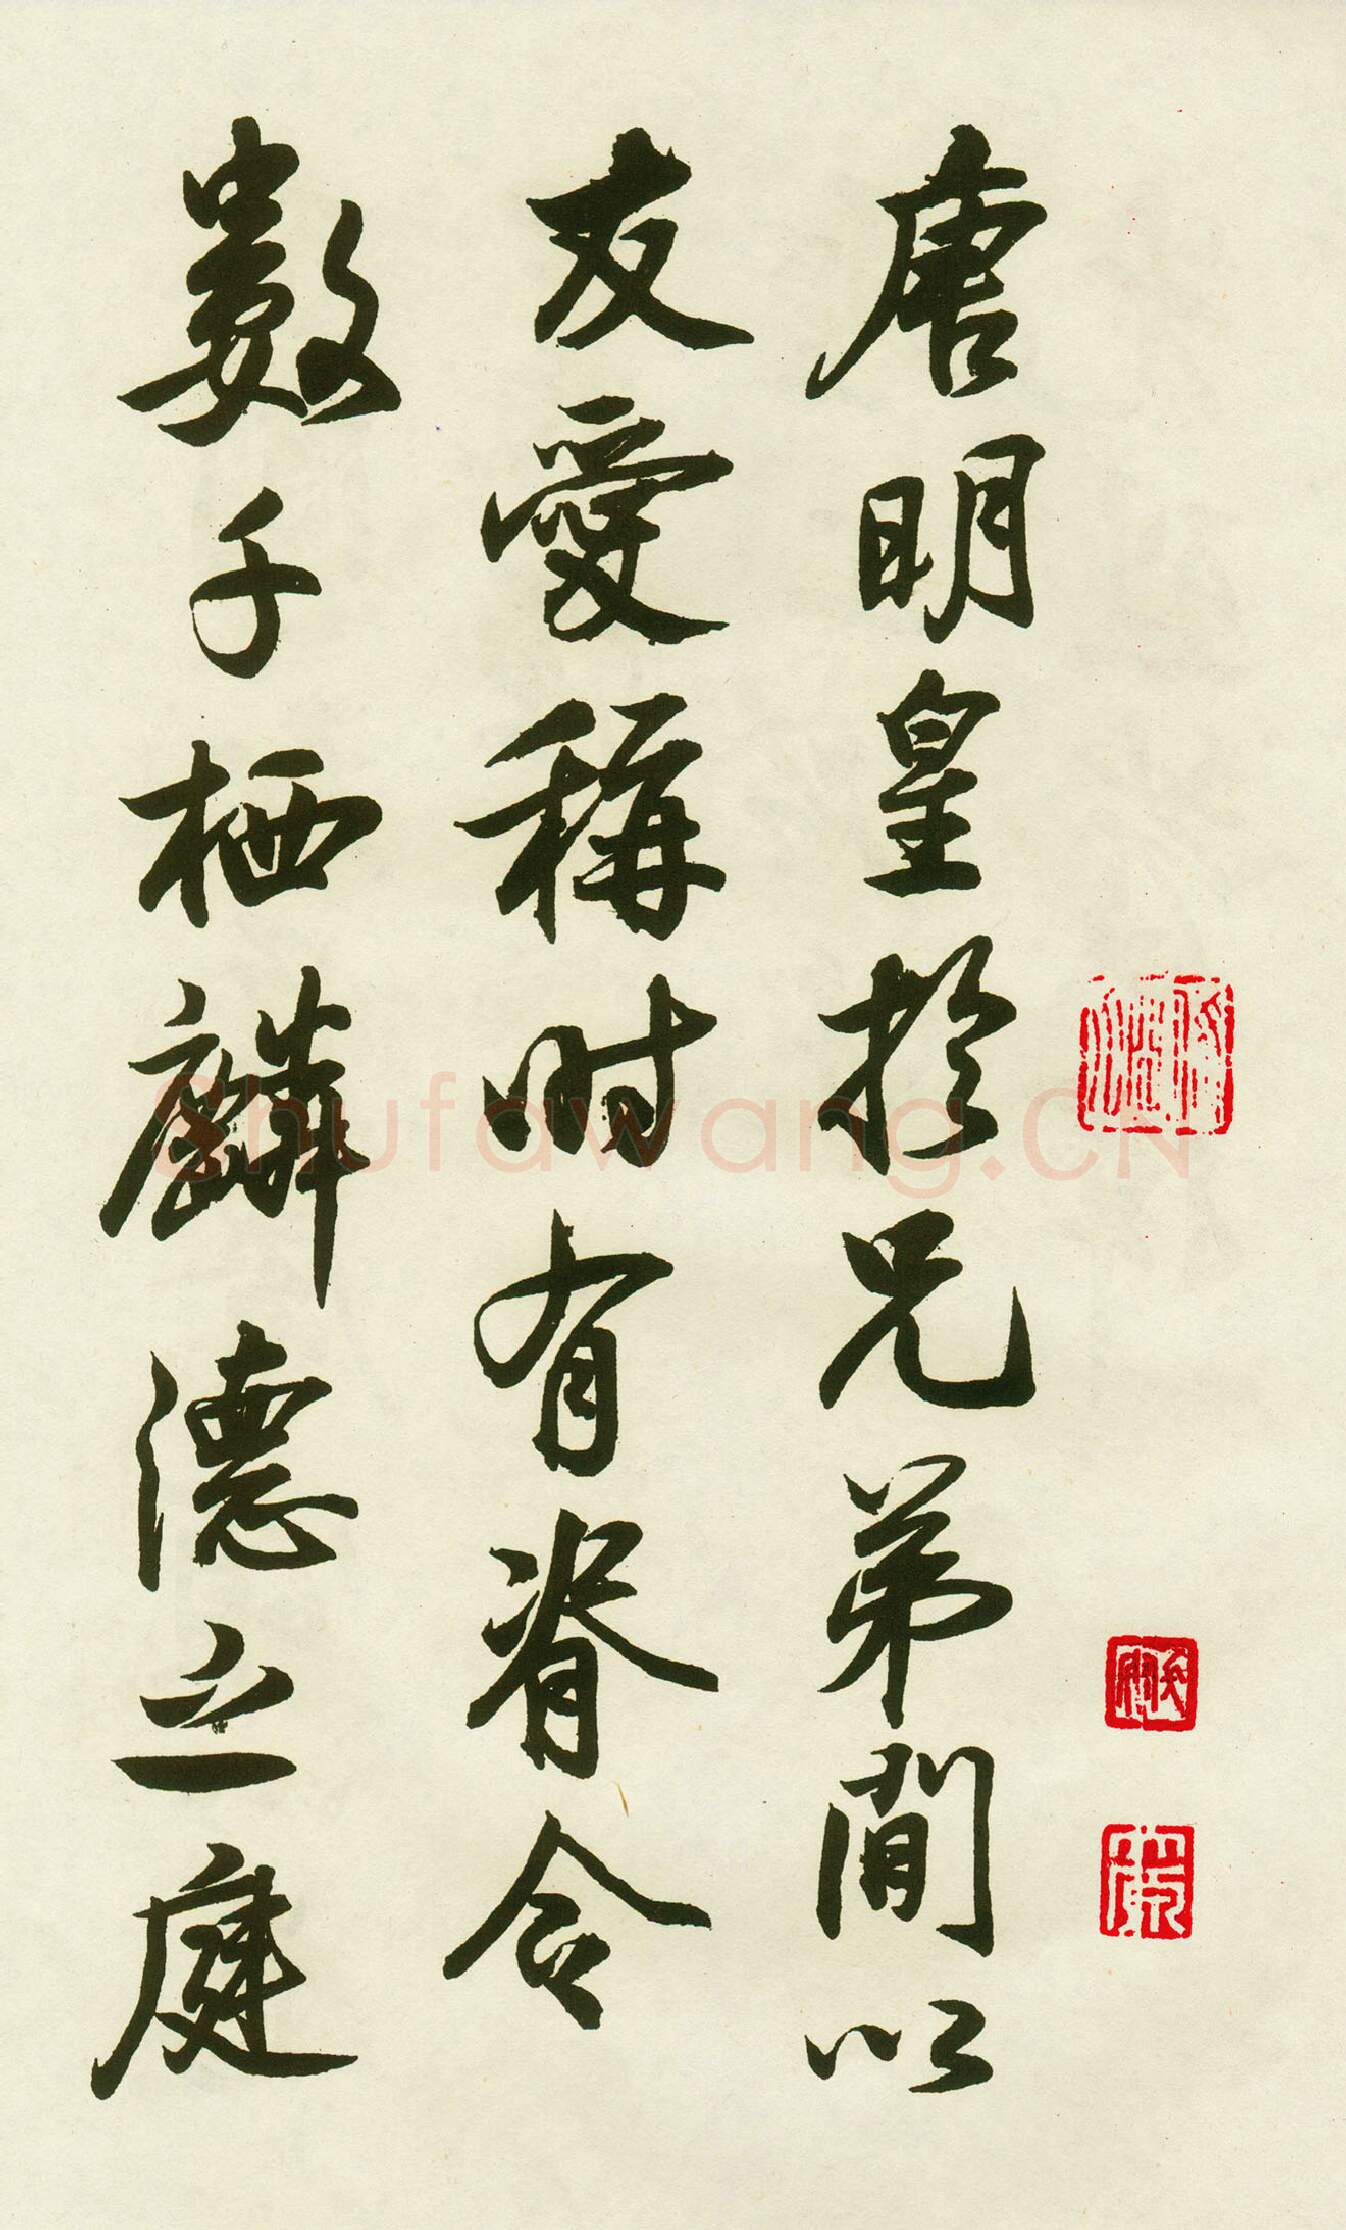 唐明皇於兄弟間以
友愛稱时有脊令
數千栖麟德之庭
Shufawang.CN